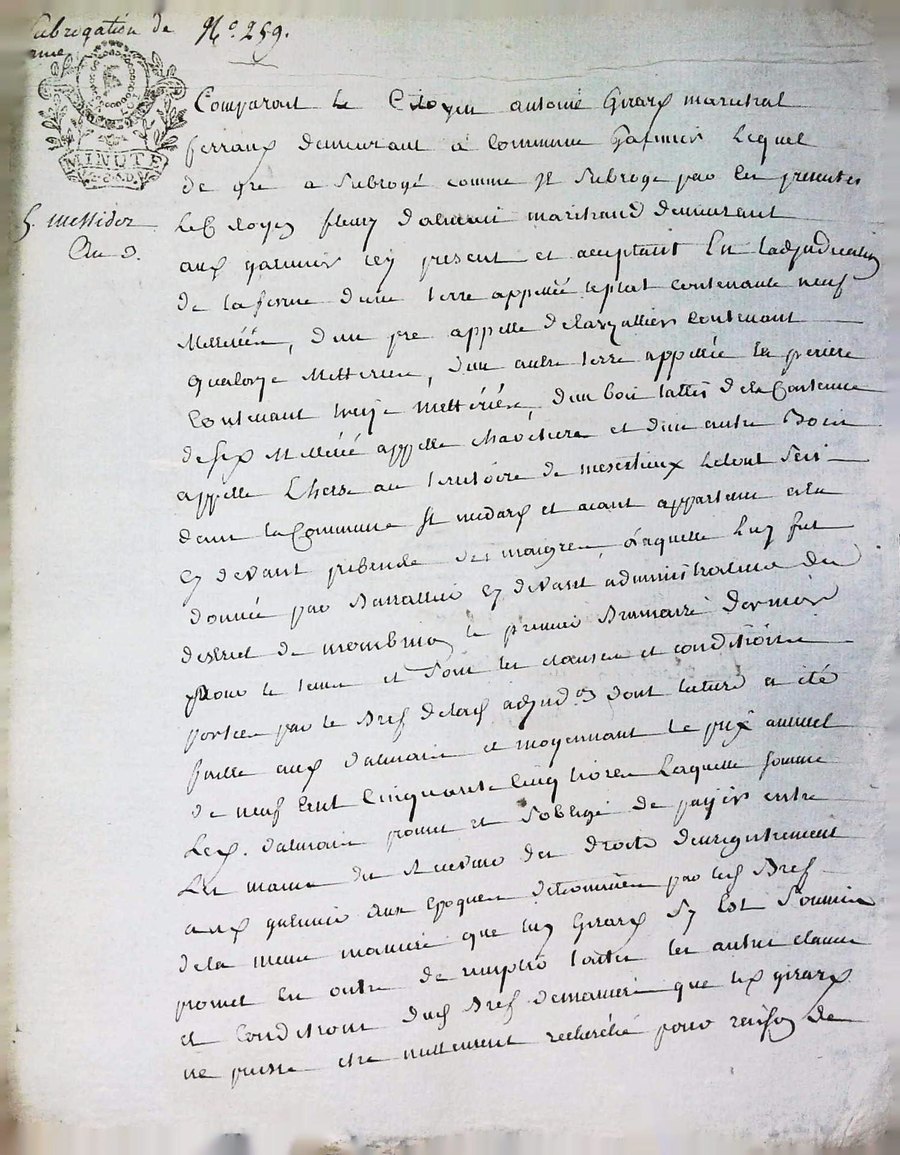 Subrogation de
N.o 259.
MINUTE
5. messidor
An 3.
Comparait le Citoyen antoine Girard marechal
ferrand demeurant a Commune Galmier Lequel
de gre a Subrogé comme Il Subroge par les presentes
Le Citoyen fleury dalmais marchand demeurant
aud galmier icy present et aceptant En Ladjudication
de la ferme dune terre appellée leplat contenante neuf
Metterées, dun pre appelle delavallier Contenant
quatorze Metterées, dune autre terre appellée la periere
Contenant treize metterées, dun bois tallis dela Contenue
de six Metterée appelle chavechere et dun autre Bois
appelle Lherse au territoire de Letout Scis
dans la Commune St medard et aiant appartenu cela
cy devant prebende des maigres, Laquelle Luy fut
donnée par cy devant administrateur du
district de le premier Brumaire dernier
pour le tems et Sous les clauses et conditions
portées par le Bref delad adjud.on dont lecture a été
faitte aud dalmais et moyennant le prix annuel
de neuf Cent Cinquante Cinq livres Laquelle Somme
Led. dalmais promet et Soblige de payer entre
Les mains du Receveur des droits denregistrement
aud galmier aux Epoques determinées par led Bref
dela meme maniere que led Girard Sy Est Soumis
promet En outre de remplir toutes les autres clauses
et Conditions dud Bref demaniere que led girard
ne puisse etre nullement recherché pour raison de